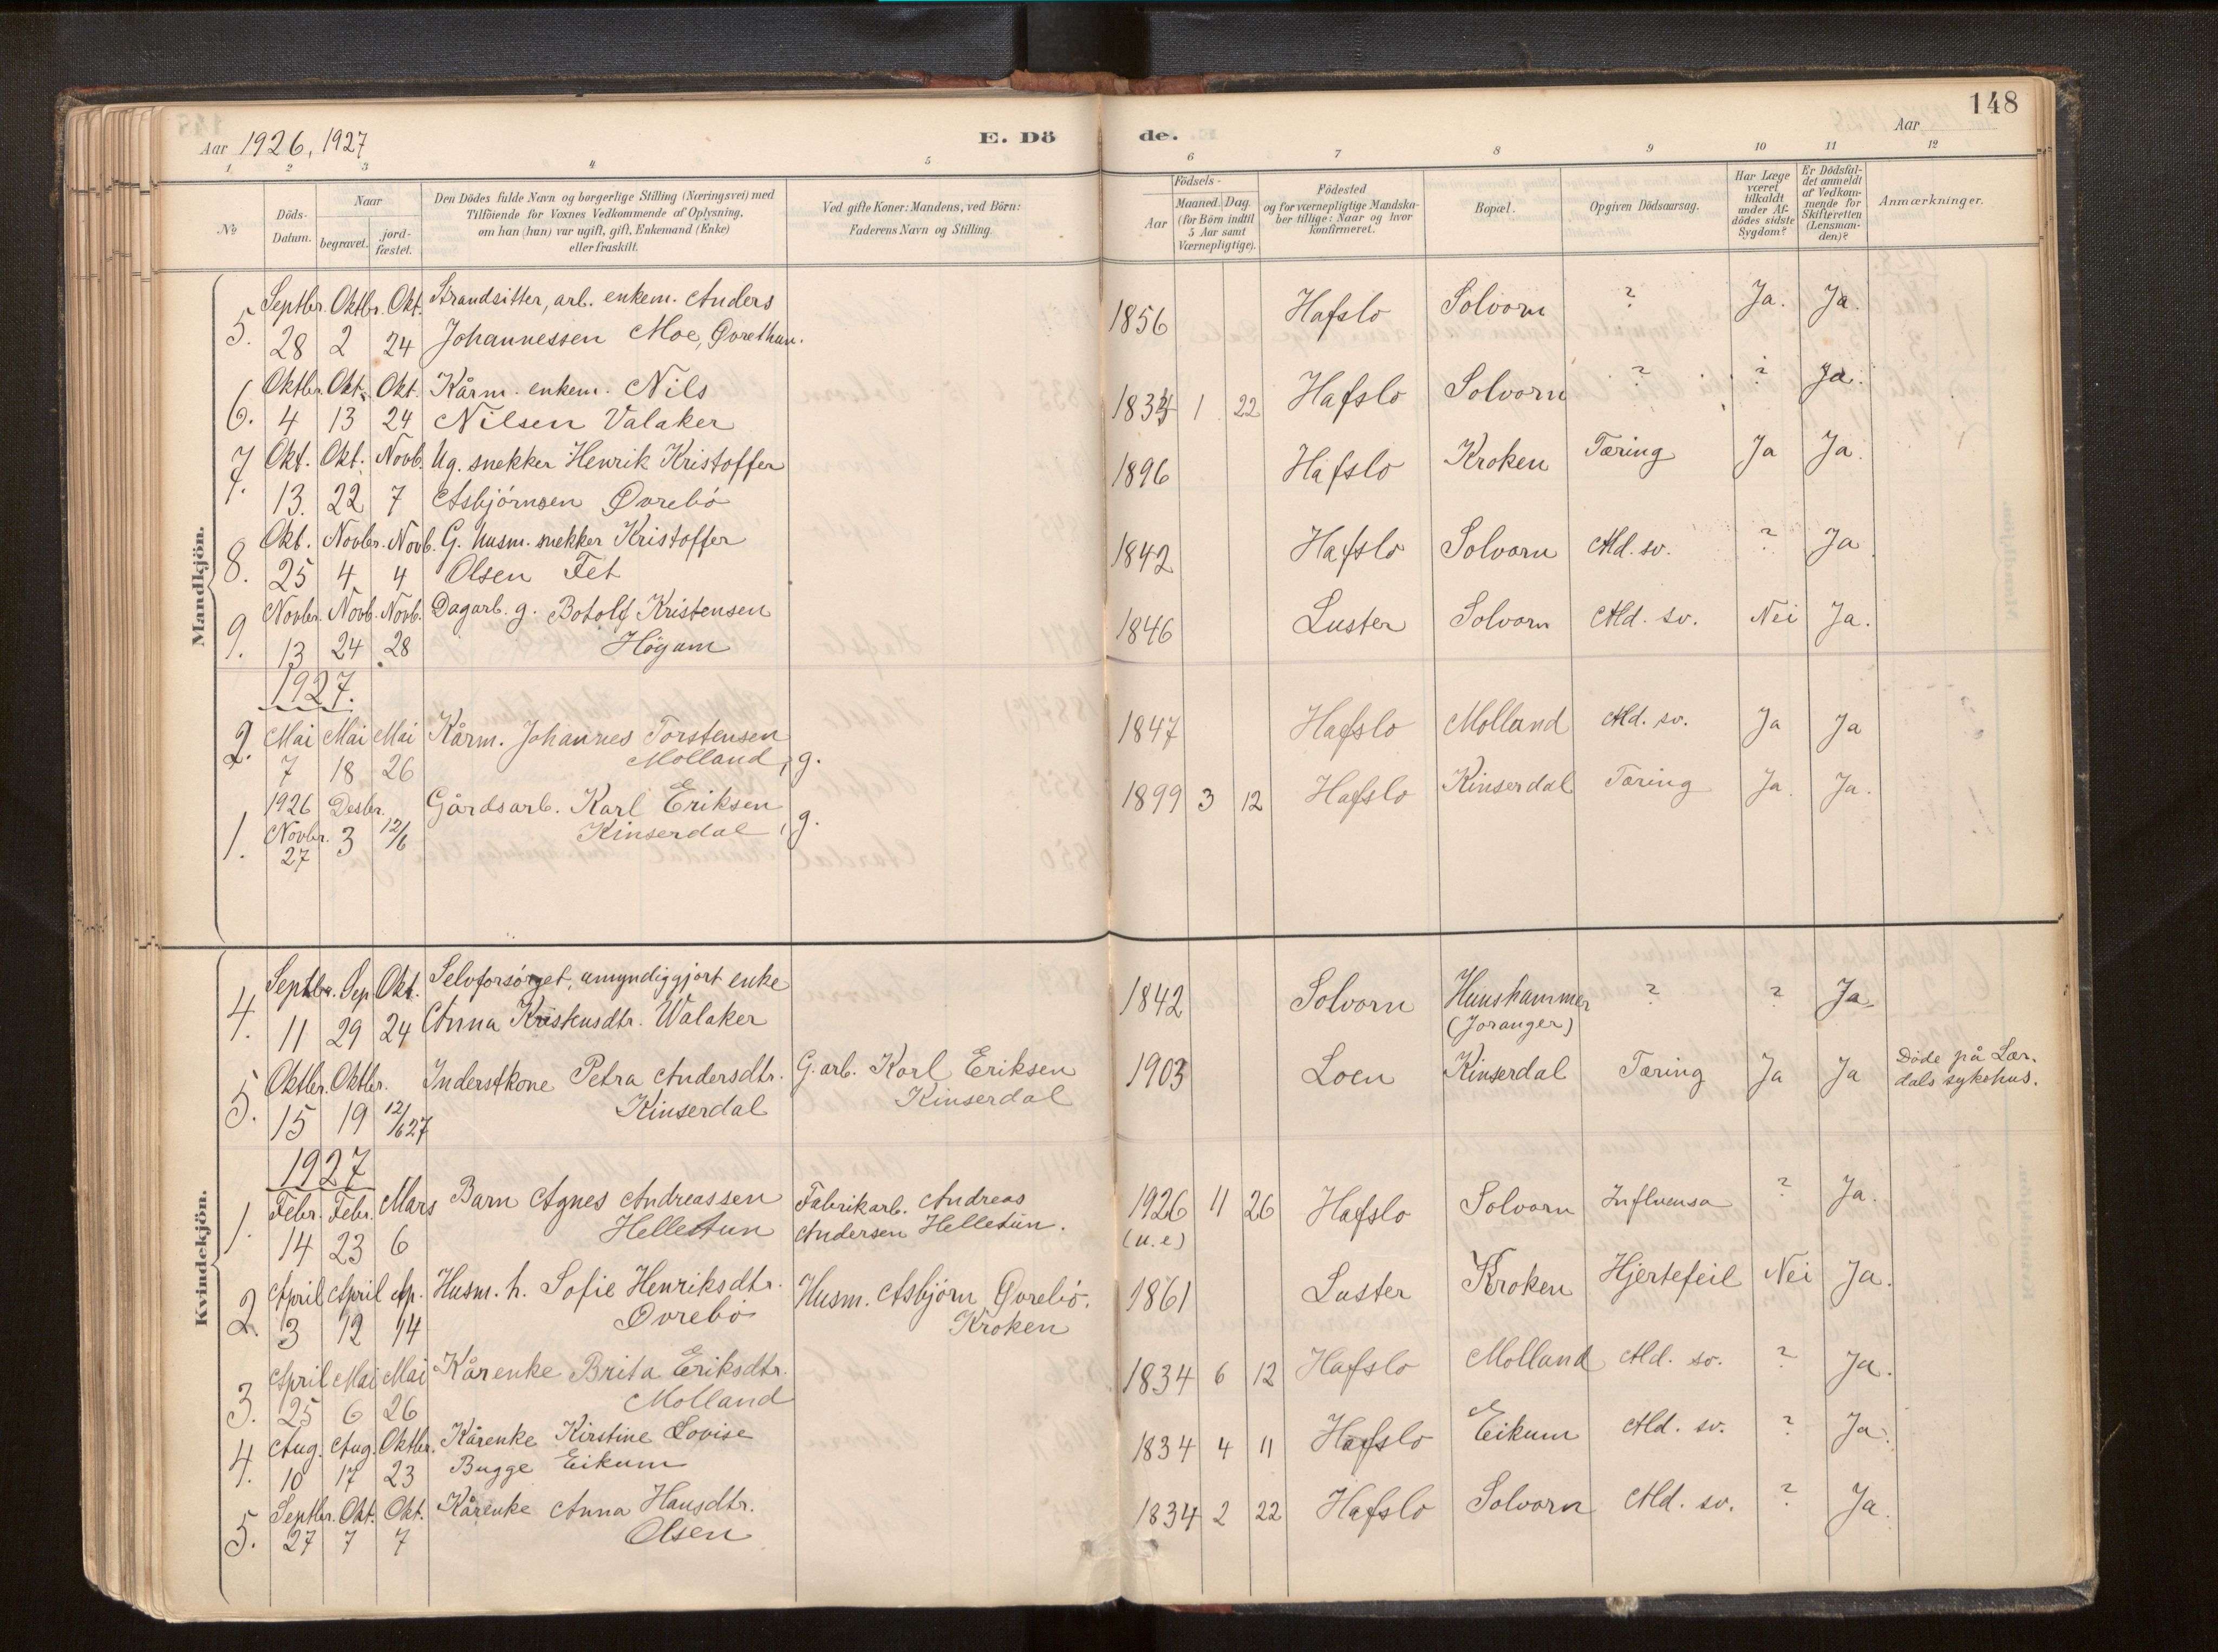 148
Aar 1926, 1927
E. Döde.
Aar
1. 2 3 4 5 6 7 8 9 10 11 12
№
Döds-Datum.
Naar
begravet.
jord-fæstet.
Den Dödes fulde Navn og borgerlige Stilling (Næringsvei) med
Tilföiende for Voxnes Vedkommende af Oplysning,
om han (hun) var ugift, gift, Enkemand (Enke)
eller fraskilt.
Ved gifte Koner: Mandens, ved Börn:
Faderens Navn og Stilling.
Födsels-
Aar
Maaned. Dag.
(for Börn indtil
5 Aar samt
Værnepligtige).
Födested
og for værnepligtige Mandska-
ber tillige: Naar og hvor
konfirmeret.
Bopæl.
Opgiven Dödsaarsag.
Har Læge
været
tilkaldt
under Af-
dödes sidste
Sygdom?
Er Dödsfal-
det anmeldt
af Vedkom-
mende for
Skifteretten
(Lensman-
den)?
Anmærkninger.
Mandkjön.
5. Septbr. Oktbr. Okt. Strandsitter, arb. enkem. Anders 1856 Hafslo Solvorn ? Ja. Ja.
28 2 24 Johannessen Moe, Øvrethun.
6. Oktbr. Okt. Okt. Kårm. enkem. Nils 1834 1 22 Hafslo Solvorn ? ? Ja.
4 13 24 Nilsen Valaker
7. Okt. Okt. Novb. Ug. snekker Henrik Kristoffer 1896 Hafslo Kroken Tæring Ja Ja.
13. 22 7 Asbjörnsen Øvrebö
8. Okt. Novbr. Novb. G. husm. snekker Kristoffer 1842 Hafslo Solvorn Ald. sv. ? Ja
25 4 4 Olsen Fet
9. Novbr. Novb. Novb. Dagarb. g. Botolf Kristensen 1846 Luster Solvorn Ald. sv. Nei Ja.
13 24 28 Högum
1927.
2. Mai Mai Mai Kårm. Johannes Torstensen 1847 Hafslo Molland Ald. sv. Ja Ja
7 18 26 Molland, g.
1. 1926 Desbr. Gårdsarb. Karl Eriksen 1899 3 12 Hafslo Kinserdal Tæring Ja. Ja.
Novbr. 3 12/6 Kinserdal, g.
27
Kvindekjön.
4. Septbr. Sep. Okt. Selvforsörget, umyndiggjort enke 1842 Solvorn Hunshammer ? ? Ja
11 29 24 Anna Kristensdtr. Walaker (Joranger)
5. Oktbr. Oktbr. Inderstkone Petra Andersdtr. G. arb. Karl Eriksen 1903 Loen Kinserdal Tæring Ja Ja Döde på Lær-
15 19 12/6 27 Kinserdal Kinserdal dals sykehus.
1927
1. Febr. Febr. Mars Barn Agnes Andreassen Fabrikarb. Andreas 1926 11 26 Hafslo Solvorn Influensa ? Ja.
14 23 6 Hellestun Andersen Helletun. (u.e)
2. April April Ap. Husm. h. Sofie Henriksdtr. Husm. Asbjörn Øvrebö. 1861 Luster Kroken Hjertefeil Nei Ja.
3 12 14 Øvrebö Kroken
3. April Mai Mai Kårenke Brita Eriksdtr. 1834 6 12 Hafslo Molland Ald. sv. ? Ja.
25 6 26 Molland
4. Aug. Aug. Oktbr. Kårenke Kirstine Lovise 1834 4 11 Hafslo Eikum Ald. sv. ? Ja.
10 17 23 Bugge Eikum
5. Septbr. Okt. Okt. Kårenke Anna Hansdtr. 1834 2 22 Hafslo Solvorn Ald. sv. ? Ja.
27 7 7 Olsen